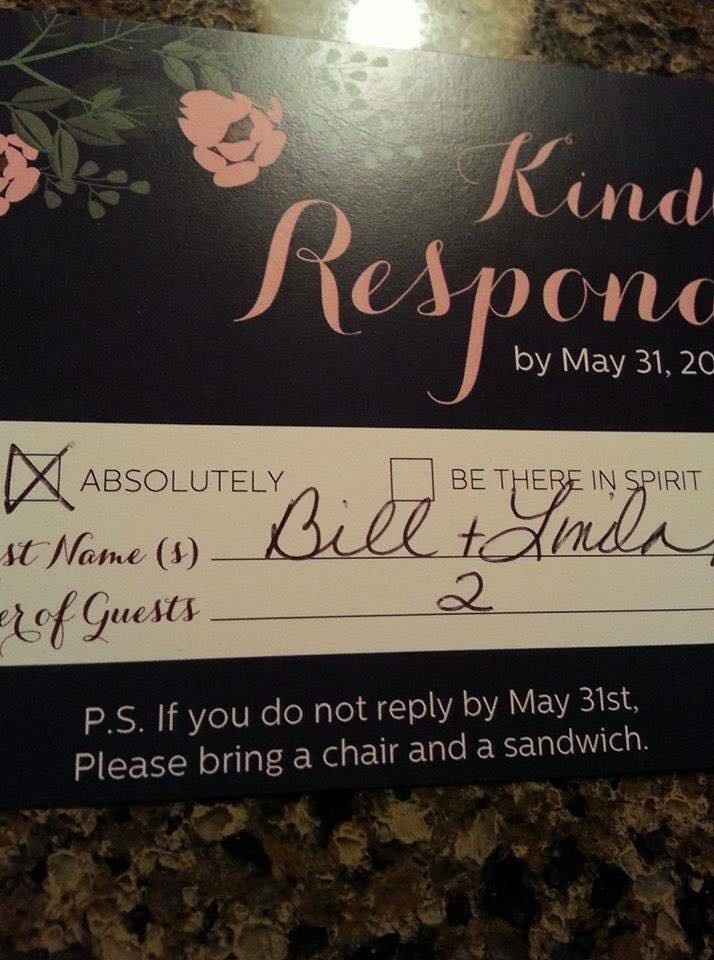 Kind
Respond
by May 31, 20
ABSOLUTELY BE THERE IN SPIRIT
st Name (s) Bill + Linda
er of Guests 2
P.S. If you do not reply by May 31st,
Please bring a chair and a sandwich.